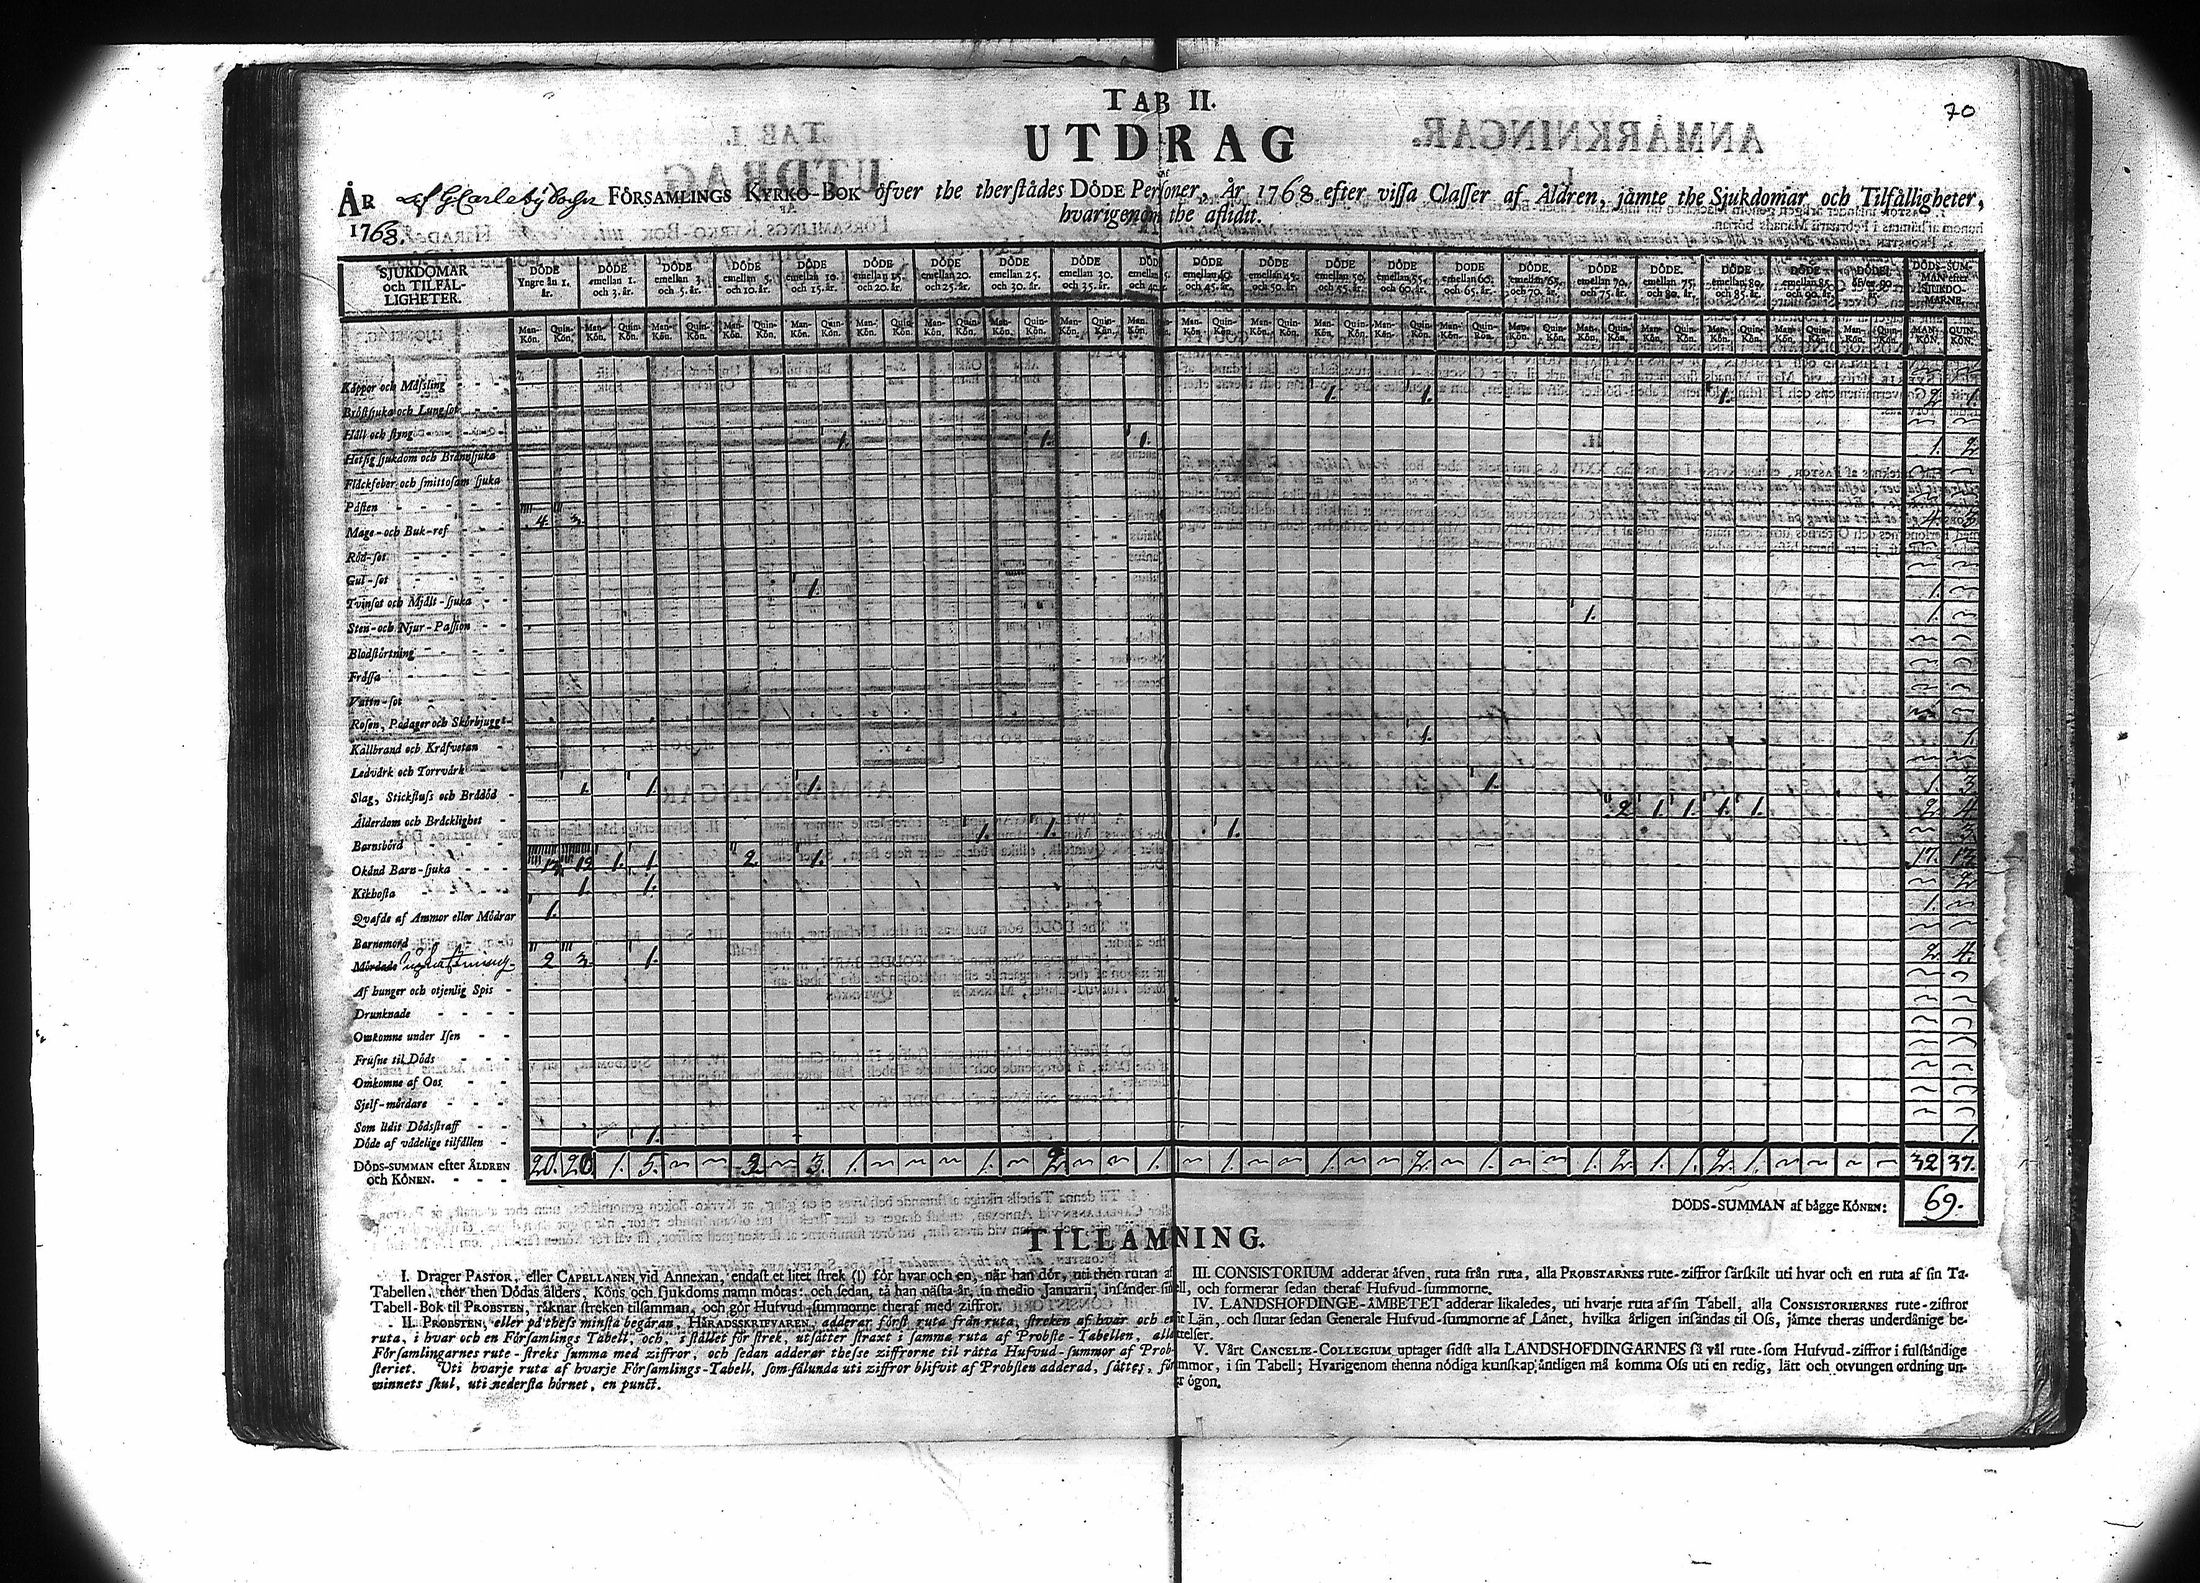 TAB II.
70
UTDRAG
AF
ÅR af GCarleby Sochn FÖRSAMLINGS KYRKO-BOK öfver the therstädes DÖDE Personer, År 1768 efter vissa Classer af Åldren, jämte the Sjukdomar och Tilfälligheter,
1768. hvarigenom the aflidit.
SJUKDOMAR och TILFÄLLIGHETER.
DÖDE Yngre än 1. år.
DÖDE emellan 1. och 3. år.
DÖDE emellan 3. och 5. år.
DÖDE emellan 5. och 10. år.
DÖDE emellan 10. och 15. år.
DÖDE emellan 15. och 20. år.
DÖDE emellan 20. och 25. år.
DÖDE emellan 25. och 30. år.
DÖDE emellan 30. och 35. år.
DÖDE och 40. år.
DÖDE emellan 40. och 45. år.
DÖDE emellan 45. och 50. år.
DÖDE emellan 50. och 55. år.
DÖDE emellan 55. och 60. år.
DÖDE emellan 60. och 65. år.
DÖDE emellan 65. och 70. år.
DÖDE emellan 70. och 75. år.
DÖDE emellan 75. och 80. år.
DÖDE emellan 80. och 85. år.
DÖDE emellan 85. och 90. år.
DÖDE öfver 90 år.
DÖDS-SUMMAN efter SJUKDOMARNE.
Man-Kön. Quin-Kön. Man-Kön. Quin-Kön. Man-Kön. Quin-Kön. Man-Kön. Quin-Kön. Man-Kön. Quin-Kön. Man-Kön. Quin-Kön. Man-Kön. Quin-Kön. Man-Kön. Quin-Kön. Man-Kön. Quin-Kön. Man-Kön. Man-Kön. Quin-Kön. Man-Kön. Quin-Kön. Man-Kön. Quin-Kön. Man-Kön. Quin-Kön. Man-Kön. Quin-Kön. Man-Kön. Quin-Kön. Man-Kön. Quin-Kön. Man-Kön. Quin-Kön. Man-Kön. Quin-Kön. Man-Kön. Quin-Kön. Man-Kön. Quin-Kön. MAN-KÖN. QUIN-KÖN.
Koppor och Mässling
Bröstsjuka och Lungsot 1. 1. 1. 2. 1.
Håll och styng
Hetsig sjukdom och Brännsjuka 1. 1. 1. 1. 2
Fläckfeber och smittosam sjuka
Påsten
Mage- och Buk-ref 4. 3. 4. 3.
Röd-sot
Gul-sot
Tvinsot och Mjält-sjuka 1. 1.
Sten- och Njur-Passion 1. 1.
Blodstörtning
Frossa
Vattn-sot
Rosen, Podager och Skörbjugg
Kallbrand och Kräfvetan 1. 1.
Ledvärk och Torrvärk
Slag, Stickfluss och Bråddöd 1. 1. 1. 1. 1. 3
Ålderdom och Bräcklighet 2. 1. 1. 1. 1. 2. 4
Barnsbörd 1. 1. 1. 3
Okänd Barn-sjuka 13. 12 1. 1. 2. 1. 17.
Kikhosta 1. 1. 2
Qvafde af Ammor eller Mödrar 1. 1.
Barnemord
Mördade 2 3. 1. 2. 4.
Af hunger och otjenlig Spis
Drunknade
Omkomne under Isen
Frusne til Döds
Omkomne af Oos
Sjelf-mördare
Som lidit Dödsstraff
Döde af vådelige tilfällen 1. 1
DÖDS-SUMMAN efter ÅLDREN och KÖNEN. 20. 20 1. 5. 2 3. 1. 1. 2. 1. 1. 1. 2. 1. 1. 2. 1. 1. 2. 1. 32 37.
DÖDS-SUMMAN af bägge KÖNEN: 69.
TILLÄMNING.
I. Drager PASTOR, eller CAPELLANEN vid Annexan, endast et litet strek (I) för hvar och en, när han dör, uti then rutan af
Tabellen, ther then Dödas ålders, Köns och sjukdoms namn mötas: och sedan, tå han nästa år, in medio Januarii, insänder sin
Tabell-Bok til PROBSTEN, räknar streken tilsamman, och gör Hufvud-summorne theraf med ziffror.
II. PROBSTEN, eller på thess minsta begäran, HÄRADSSKRIFVAREN, adderar först ruta från ruta, streken af hvar och en
ruta, i hvar och en Församlings Tabell, och, i stället för strek, utsätter straxt i samma ruta af Probste-Tabellen, alla
Församlingarnes rute-streks summa med ziffror, och sedan adderar thesse ziffrorne til rätta Hufvud-summor af Prob-
steriet. Uti hvarje ruta af hvarje Församlings-Tabell, som sålunda uti ziffror blifvit af Probsten adderad, sättes, för
minnets skul, uti nedersta hörnet, en punct.
III. CONSISTORIUM adderar äfven, ruta från ruta, alla PROBSTARNES rute-ziffror särskilt uti hvar och en ruta af sin Ta-
bell, och formerar sedan theraf Hufvud-summorne.
IV. LANDSHÖFDINGE-ÄMBETET adderar likaledes, uti hvarje ruta af sin Tabell, alla CONSISTORIERNES rute-ziffror
sit Län, och slutar sedan Generale Hufvud-summorne af Länet, hvilka årligen insändas til Oss, jämte theras underdånige be-
rättelser.
V. Vårt CANCELIE-COLLEGIUM uptager sidst alla LANDSHÖFDINGARNES så väl rute-som Hufvud-ziffror i fulständige
summor, i sin Tabell; Hvarigenom thenna nödiga kunskap äntligen må komma Oss uti en redig, lätt och otvungen ordning un-
der ögon.